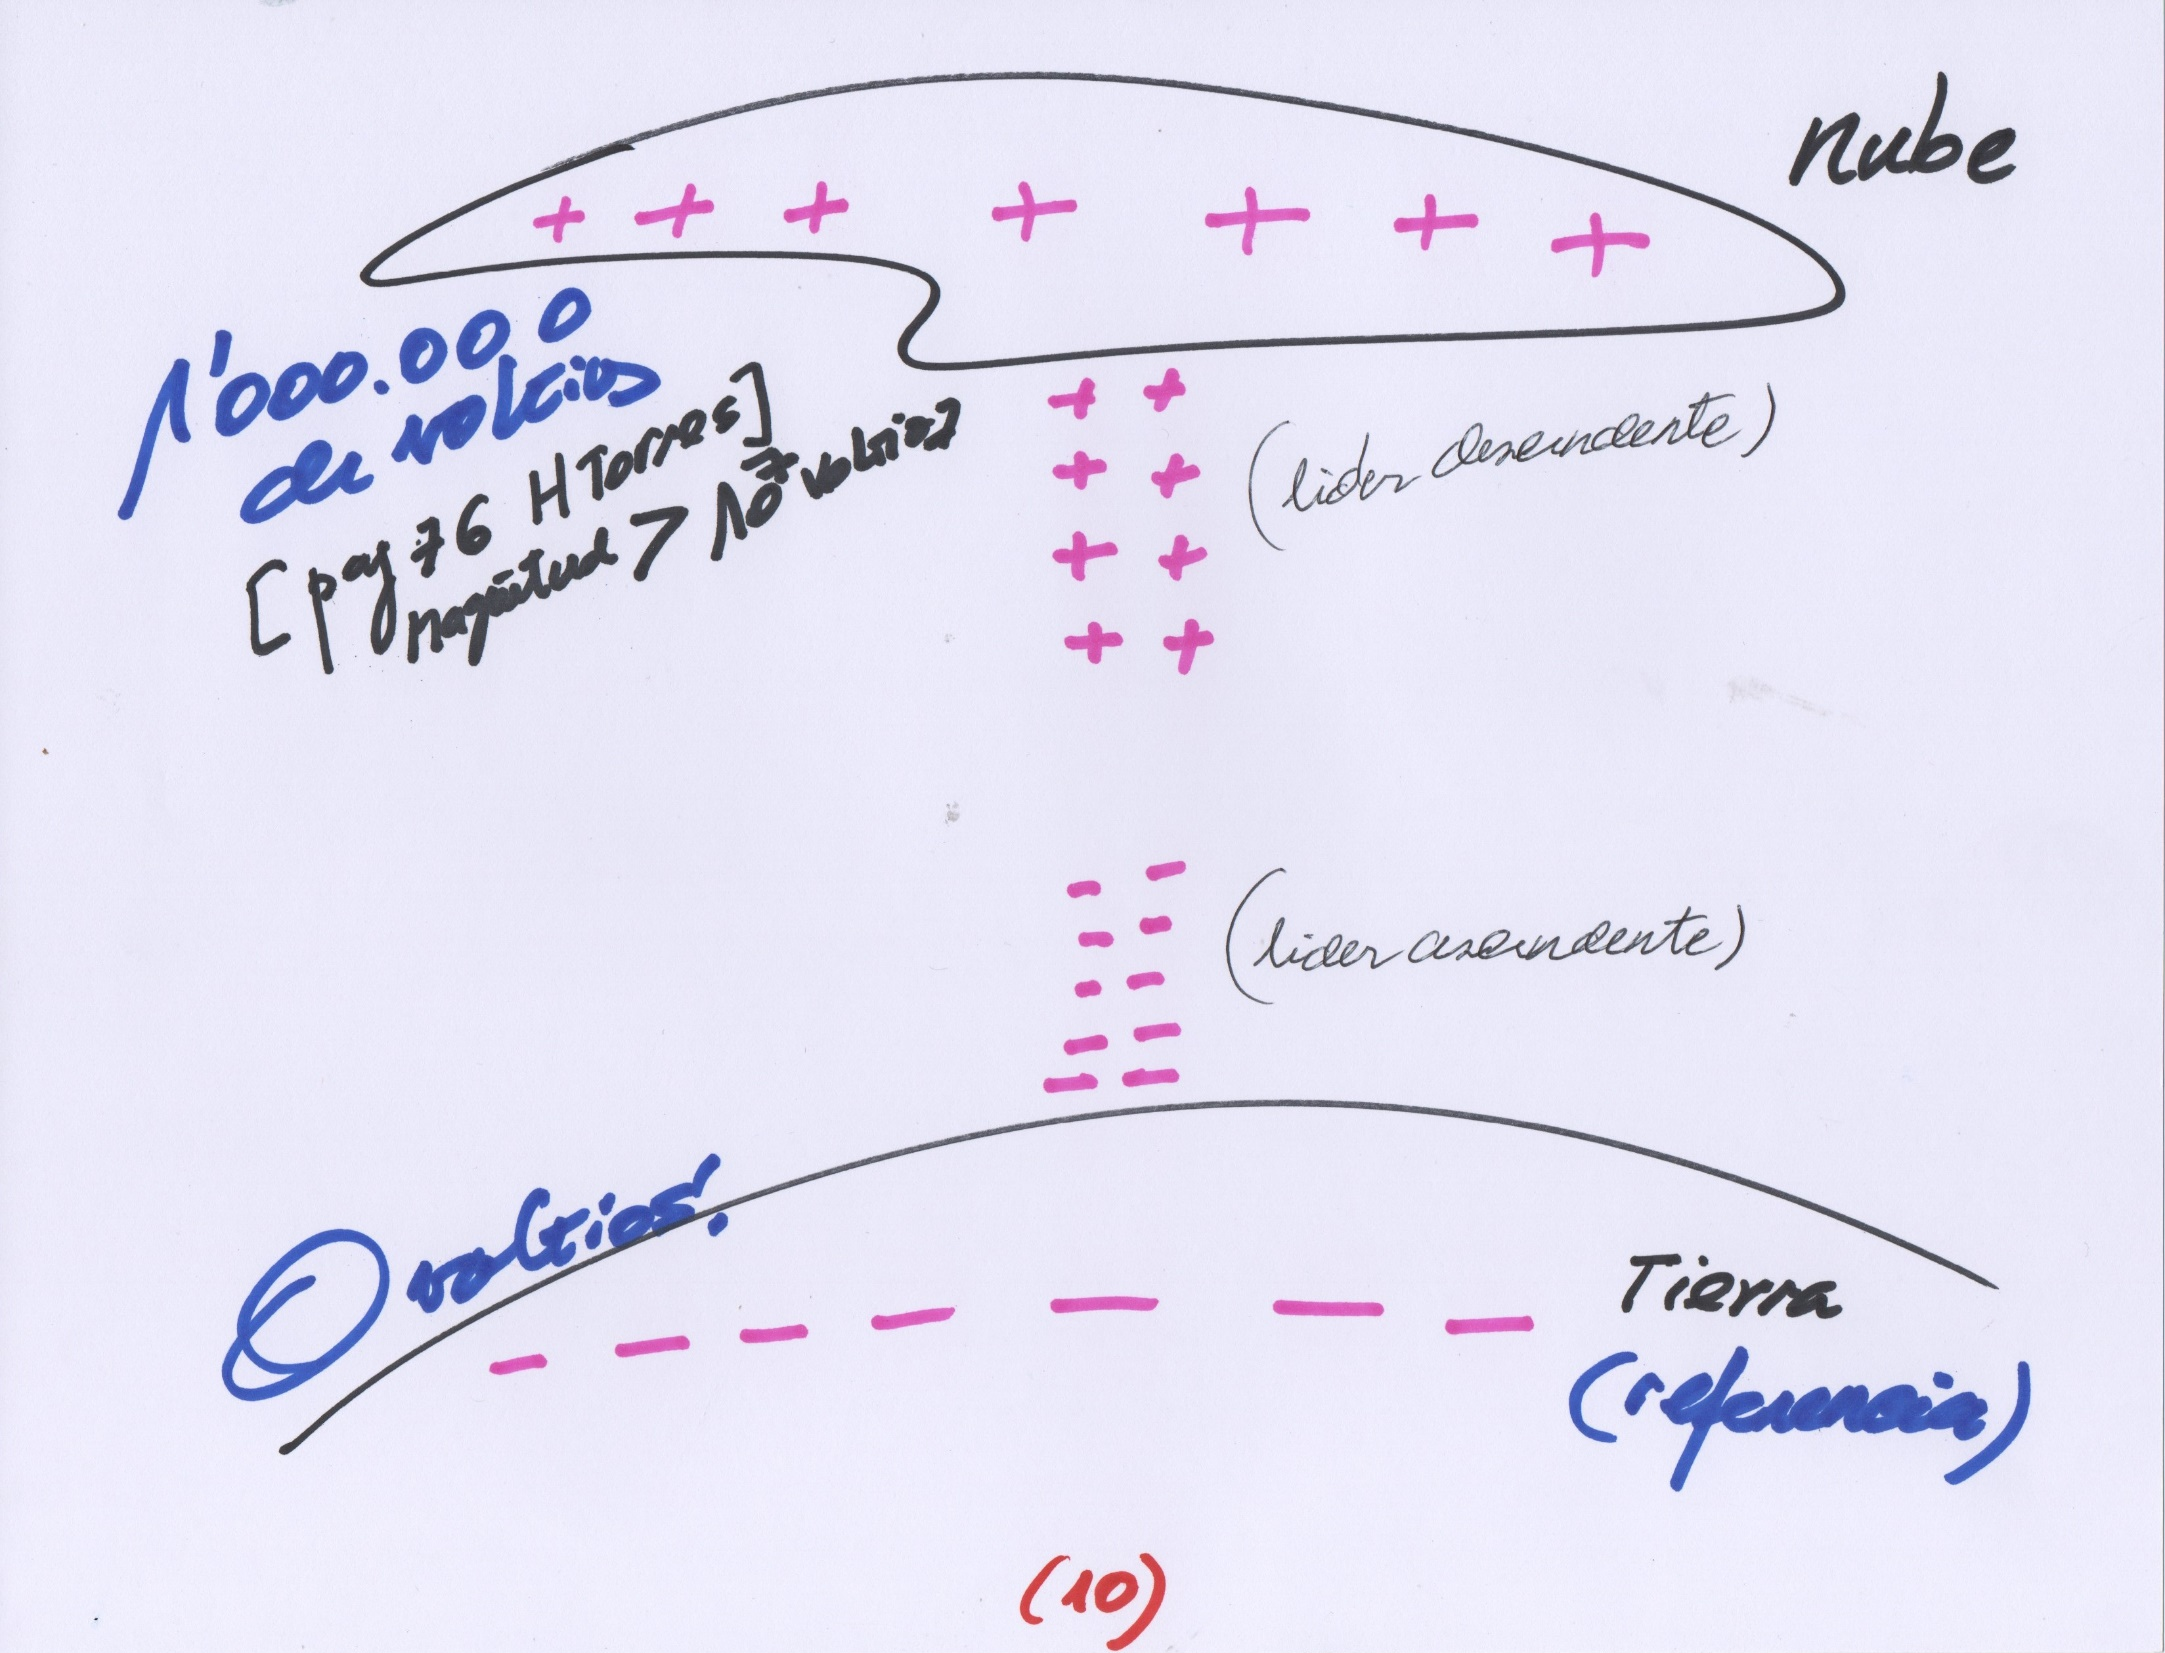 nube
1'000.000
de voltios
[pag 76 H Torres]
magnitud > 10⁷ voltios]
(lider descendente)
(lider ascendente)
0 voltios!
Tierra
(referencia)
(10)